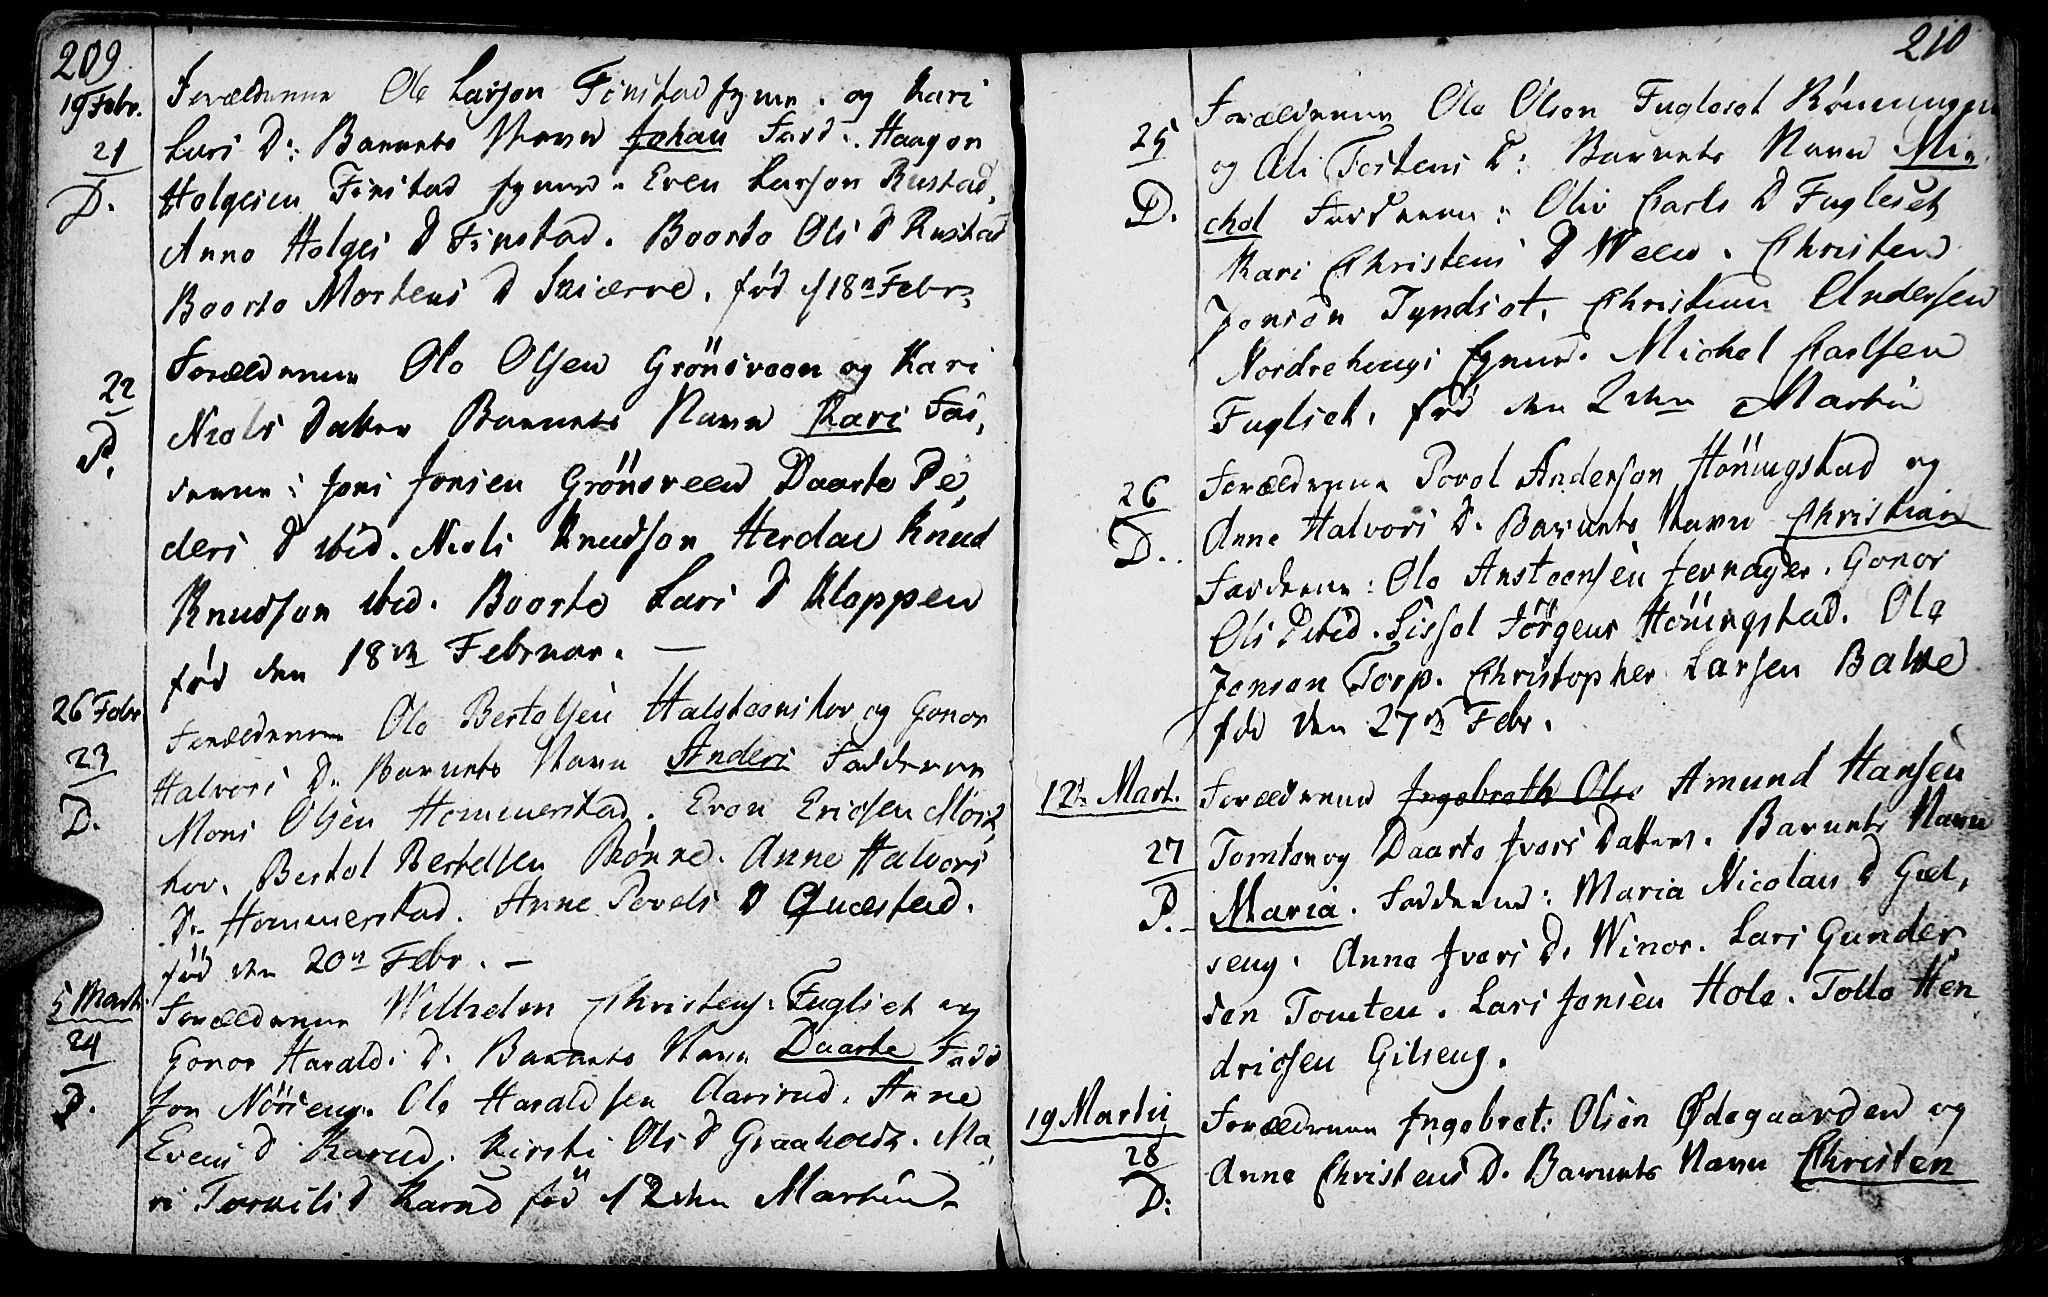 209
19 Febr.
21
D.
Forældrene Ole Larsen Finstad eyene. og Kari
Lars D: Barnets Navn Johan Fadd. Haagen
Holgesen Finstad eyene. Even Larsen Rustad,
Anne Holges D Finstad. Boorte Ols D Rustad
Boorte Mortens D Skierre. fød d 18n Febr.
22
P.
Forældrene Ole Olsen Grönsveen og Kari
Niels Datter Barnets Navn Kari Fad,
derne: Jens Jensen Grönsveen Daarte Pe,
ders D ibid. Niels Knudsen Herdal Knud
Knudsen ibid. Boorte Lars D Kloppen
fød den 18de Februar. —
26 Febr
23
D.
Forældrene Ole Bertelsen Halsteenshov og Gonor
Halvors D. Barnets Navn Anders Fadderne
Mons Olsen Hommerstad. Even Ericsen Mois,
hov. Bertel Bertelsen Rönne. Anne Halvors
D. Hommerstad. Anne Povels D Quæstad.
fød den 20n Febr. —
5 Marti
24
D.
Forældrene Wilhelm Christens. Fugliset og
Gonor Haralds D. Barnets Navn Daarte Fadd
Jon Nörseng. Ole Haraldsen Aarsrud. Anne
Evens D Karud. Kirsti Ols D Graaholdt. Ma,
ri Torkils D Karud fød d 2den Martii
210
25
D.
Forældrene Ole Olsen Fugleset Rönningen
og Oli Tostens D: Barnets Navn Mi,
chel Fadderne: Oliv Carls D Fugleset
Kari Christens D Ween. Christen
Jensen Tyndset. Christian Andersen
Nordrehougs Eyene. Michel Carlsen
Fugliset. fød den 2den Martii
26
D.
Forældrene Povel Andersen Höningstad og
Anne Halvors D. Barnets Navn Christian
Fadderne: Ole Ansteensen Jernager. Gonor
Ols D ibid. Sissel Jörgens Höningstad. Ole
Jensen Torp. Christopher Larsen Balke
fød den 27de Febr.
12te Mart.
27
P.
Forældrene Ingebreth Ols Amund Hansen
Tomten og Daarte Ivers Datter. Barnets Navn
Maria. Fadderne: Maria Nicolai D Gil,
seng. Anne Ivers D. Winor. Lars Gunder,
sen Tomten. Lars Jensen Hole. Tollo Hen,
dricsen Gilseng.
19 Martii
28
D:
Forældrene Ingebret: Olsen Ødegaarden og
Anne Christens D. Barnets Navn Christen